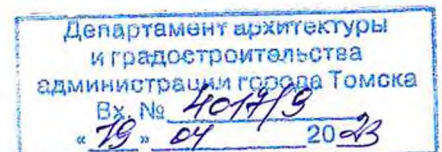 Департамент архитектуры
и градостроительства
администрации города Томска
Вх. № 4017/9
« 19 » 04 2023